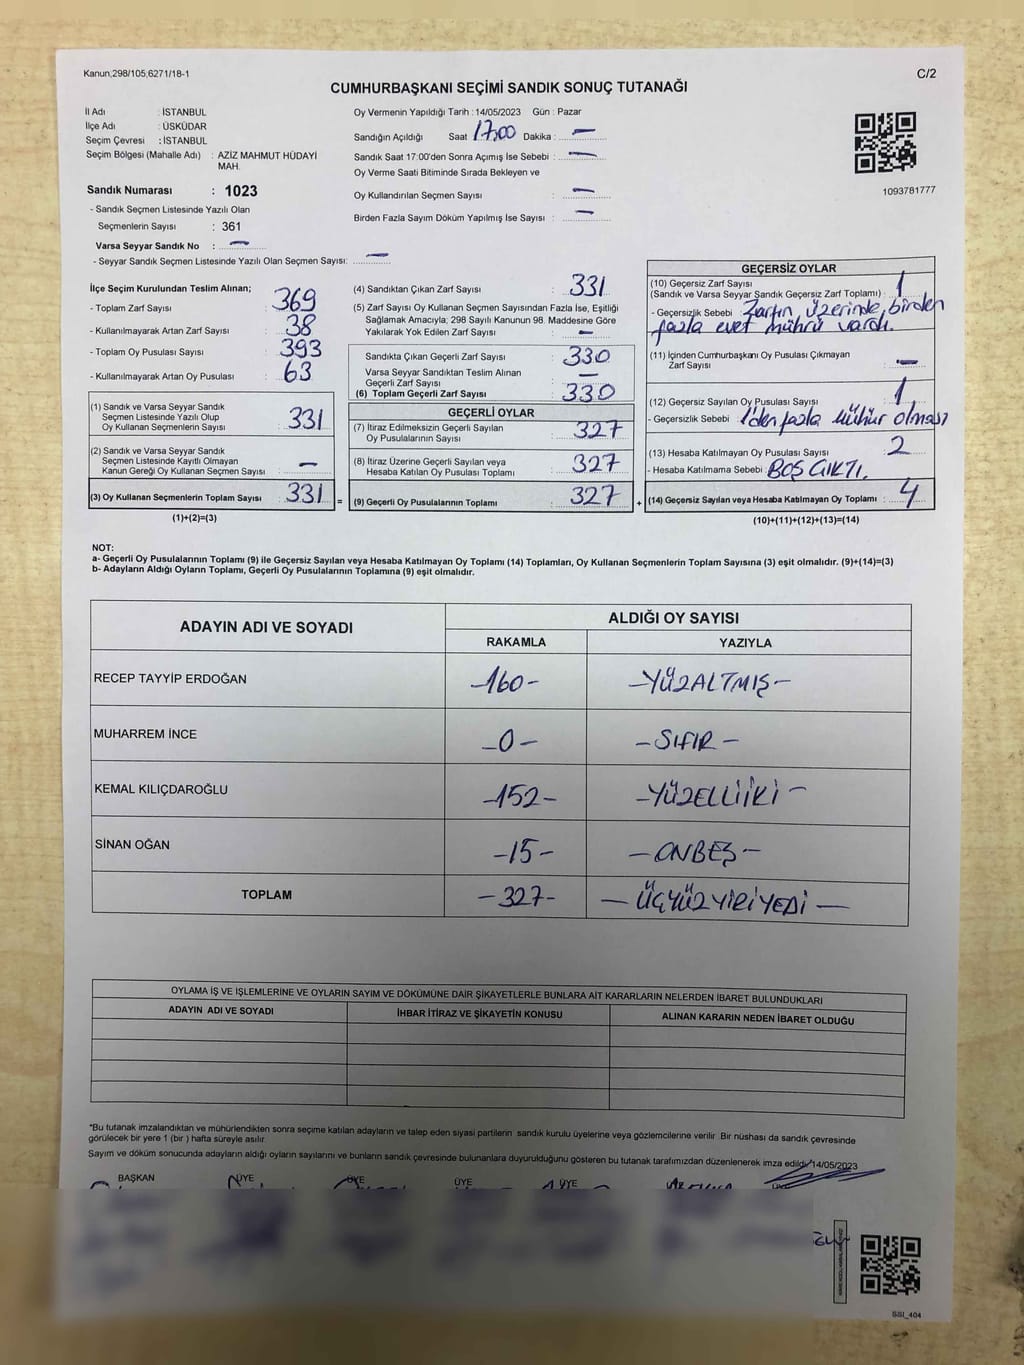 Kanun;298/105;6271/18-1
C/2
CUMHURBAŞKANI SEÇİMİ SANDIK SONUÇ TUTANAĞI
İl Adı : İSTANBUL
İlçe Adı : ÜSKÜDAR
Seçim Çevresi : İSTANBUL
Seçim Bölgesi (Mahalle Adı) : AZİZ MAHMUT HÜDAYİ
MAH.
Sandık Numarası : 1023
- Sandık Seçmen Listesinde Yazılı Olan
Seçmenlerin Sayısı : 361
Varsa Seyyar Sandık No : —
- Seyyar Sandık Seçmen Listesinde Yazılı Olan Seçmen Sayısı: —
Oy Vermenin Yapıldığı Tarih : 14/05/2023 Gün : Pazar
Sandığın Açıldığı Saat 17,00 Dakika : —
Sandık Saat 17:00'den Sonra Açımış İse Sebebi : —
Oy Verme Saati Bitiminde Sırada Bekleyen ve
Oy Kullandırılan Seçmen Sayısı : —
Birden Fazla Sayım Döküm Yapılmış İse Sayısı : —
1093781777
İlçe Seçim Kurulundan Teslim Alınan;
- Toplam Zarf Sayısı : 369
- Kullanılmayarak Artan Zarf Sayısı : 38
- Toplam Oy Pusulası Sayısı : 393
- Kullanılmayarak Artan Oy Pusulası : 63
(1) Sandık ve Varsa Seyyar Sandık
Seçmen Listesinde Yazılı Olup
Oy Kullanan Seçmenlerin Sayısı : 331
(2) Sandık ve Varsa Seyyar Sandık
Seçmen Listesinde Kayıtlı Olmayan
Kanun Gereği Oy Kullanan Seçmen Sayısı : —
(3) Oy Kullanan Seçmenlerin Toplam Sayısı : 331 =
(1)+(2)=(3)
(4) Sandıktan Çıkan Zarf Sayısı : 331
(5) Zarf Sayısı Oy Kullanan Seçmen Sayısından Fazla İse, Eşitliği
Sağlamak Amacıyla; 298 Sayılı Kanunun 98. Maddesine Göre
Yakılarak Yok Edilen Zarf Sayısı : —
Sandıkta Çıkan Geçerli Zarf Sayısı : 330
Varsa Seyyar Sandıktan Teslim Alınan
Geçerli Zarf Sayısı : —
(6) Toplam Geçerli Zarf Sayısı : 330
GEÇERLİ OYLAR
(7) İtiraz Edilmeksizin Geçerli Sayılan
Oy Pusulalarının Sayısı : 327
(8) İtiraz Üzerine Geçerli Sayılan veya
Hesaba Katılan Oy Pusulası Toplamı : 327
(9) Geçerli Oy Pusulalarının Toplamı : 327 +
GEÇERSİZ OYLAR
(10) Geçersiz Zarf Sayısı
(Sandık ve Varsa Seyyar Sandık Geçersiz Zarf Toplamı) : 1
- Geçersizlik Sebebi : Zarfın üzerinde, birden
fazla evet mührü vardı.
(11) İçinden Cumhurbaşkanı Oy Pusulası Çıkmayan
Zarf Sayısı : —
(12) Geçersiz Sayılan Oy Pusulası Sayısı : 1
- Geçersizlik Sebebi : 1'den fazla mühür olması
(13) Hesaba Katılmayan Oy Pusulası Sayısı : 2
- Hesaba Katılmama Sebebi : BOŞ ÇIKTI.
(14) Geçersiz Sayılan veya Hesaba Katılmayan Oy Toplamı : 4
(10)+(11)+(12)+(13)=(14)
NOT:
a- Geçerli Oy Pusulalarının Toplamı (9) ile Geçersiz Sayılan veya Hesaba Katılmayan Oy Toplamı (14) Toplamları, Oy Kullanan Seçmenlerin Toplam Sayısına (3) eşit olmalıdır. (9)+(14)=(3)
b- Adayların Aldığı Oyların Toplamı, Geçerli Oy Pusulalarının Toplamına (9) eşit olmalıdır.
ADAYIN ADI VE SOYADI
ALDIĞI OY SAYISI
RAKAMLA YAZIYLA
RECEP TAYYİP ERDOĞAN -160- -YÜZALTMIŞ-
MUHARREM İNCE -0- -SIFIR-
KEMAL KILIÇDAROĞLU -152- -YÜZELLİİKİ-
SİNAN OĞAN -15- -ONBEŞ-
TOPLAM -327- -ÜÇYÜZYİRİYEDİ-
OYLAMA İŞ VE İŞLEMLERİNE VE OYLARIN SAYIM VE DÖKÜMÜNE DAİR ŞİKAYETLERLE BUNLARA AİT KARARLARIN NELERDEN İBARET BULUNDUKLARI
ADAYIN ADI VE SOYADI İHBAR İTİRAZ VE ŞİKAYETİN KONUSU ALINAN KARARIN NEDEN İBARET OLDUĞU
*Bu tutanak imzalandıktan ve mühürlendikten sonra seçime katılan adayların ve talep eden siyasi partilerin sandık kurulu üyelerine veya gözlemcilerine verilir. Bir nüshası da sandık çevresinde
görülecek bir yere 1 (bir ) hafta süreyle asılır.
Sayım ve döküm sonucunda adayların aldığı oyların sayılarını ve bunların sandık çevresinde bulunanlara duyurulduğunu gösteren bu tutanak tarafımızdan düzenlenerek imza edildi. 14/05/2023
BAŞKAN ÜYE ÜYE ÜYE ÜYE
SSI_404